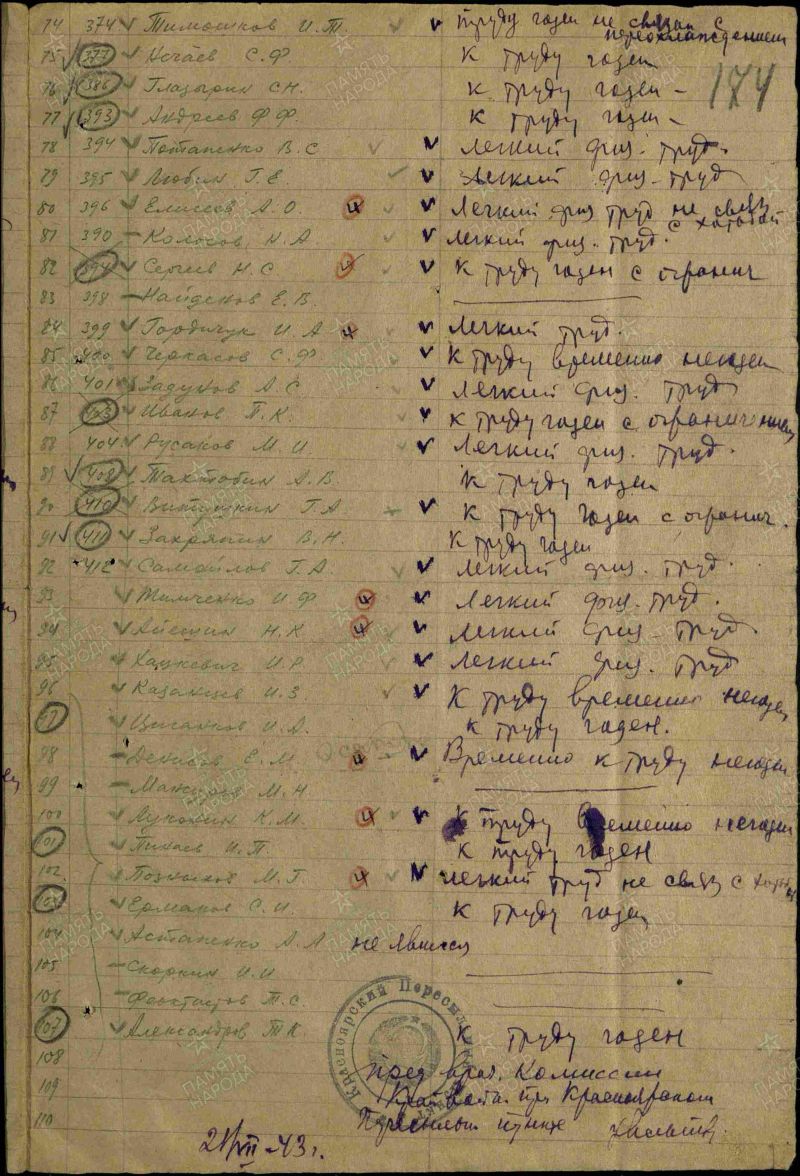 74 374 Тимошков И.Т. труду годен не связан с переохлаждением
75 377 Ночаев С.Ф. К труду годен
174
76 386 Глазырин С.Н. к труду годен
77 393 Андреев Ф.Ф. к труду годен
78 394 Потапенко В.С легкий физ. труд.
79 395 Любин Г.Е легкий физ. труд
80 396 Елисеев А.О. 4 Легкий физ труд не связ с ходьбой
81 390 Колосов Н.А легкий физ. труд.
82 397 Сергеев Н.С. 4 К труду годен с огранич
83 398 Найденов Е.В.
84 399 Гордичук И.А 4 Легкий труд.
85 400 Черкасов С.Ф К труду временно негоден
86 401 Задунов А.С. Легкий физ. труд
87 403 Иванов П.К. к труду годен с ограничением
88 404 Русаков М.И. Легкий физ. труд.
89 408 Тахтобин А.В. К труду годен
90 410 Г.А К труду годен с огранич.
91 411 Захряпин В.Н. К труду годен
92 412 Самойлов Г.А легкий физ. труд.
93 Жимченко И Ф 4 Легкий физ. труд.
94 Н.К 4 Легкий физ. труд.
95 Хацкевич И.Р. Легкий физ. труд
96 Казанцев И.З К труду временно негоден
97 Цыганков И.А. К труду годен.
98 Денисов Е.М 4 Временно к труду негоден
99 М.Н
100 Лукошин К.М. 4 К труду временно негоден
101 И.П. К труду годен
102 Поздняков М.Г. 4 легкий труд не связ с
103 Ермаков С.И. К труду годен
104 Астапенко А.Л не явился
105 Скоркин И.И
106 Феоктистов Т.С.
107 Александров Т.К К труду годен
108
109
110
Красноярский Пересыл
Пред врач. Комиссии
при Красноярском
Пересыльн пункте
21/VII-43г.
ПАМЯТЬ НАРОДА